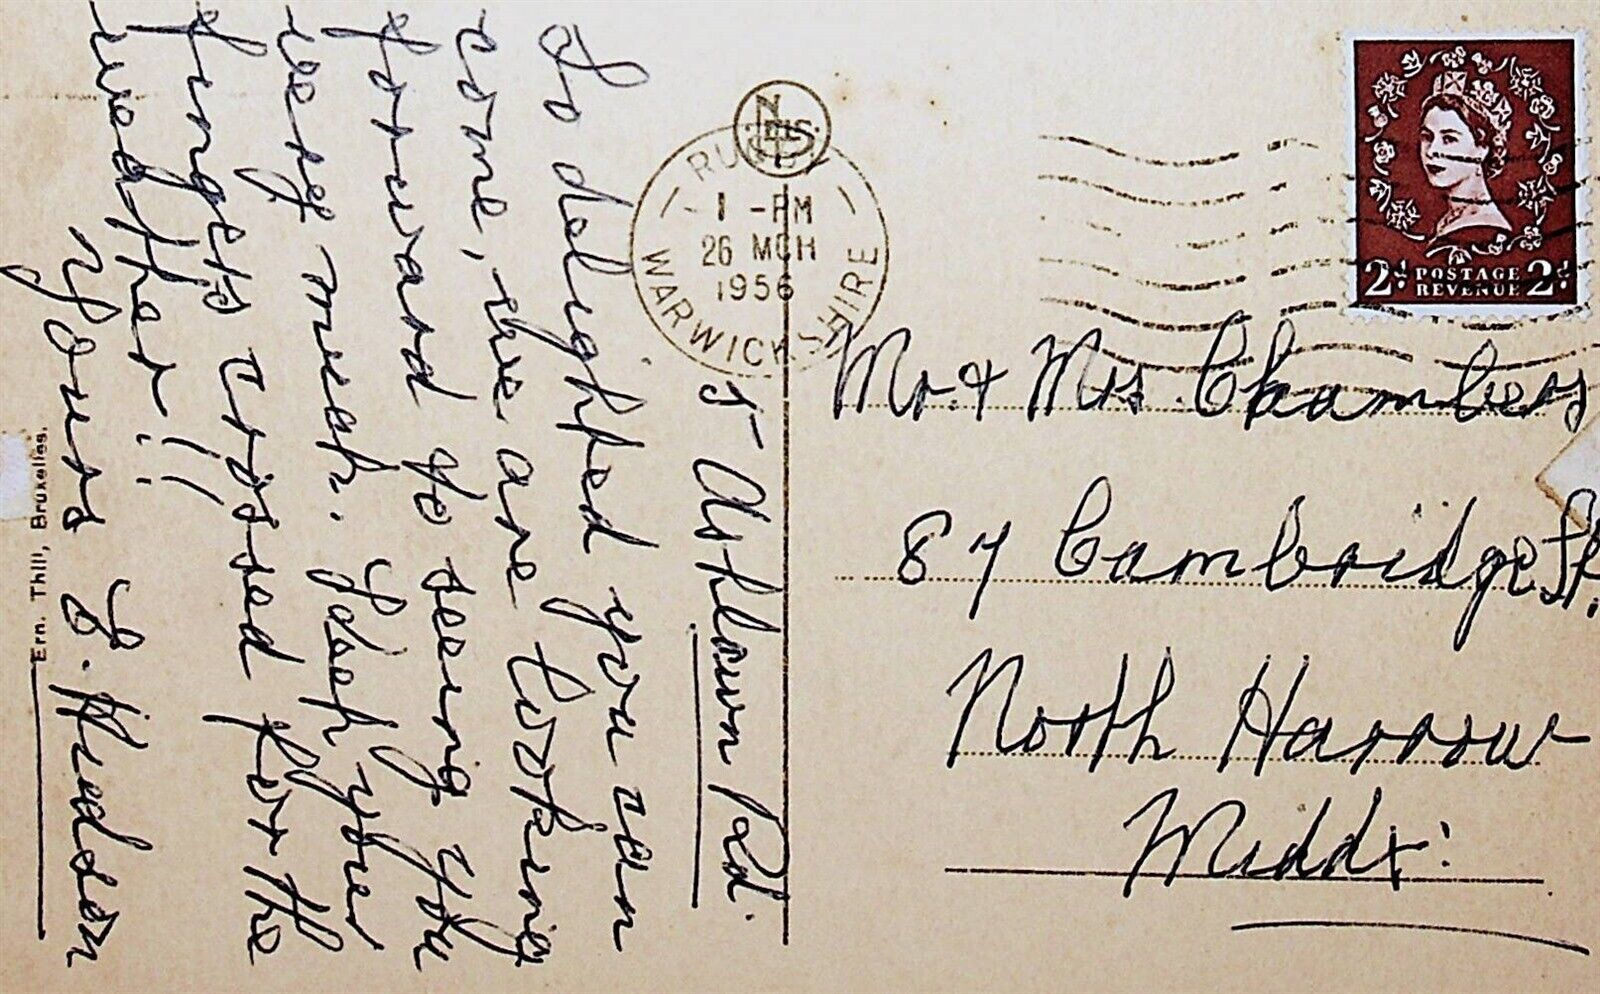 5 Ashlawn Rd.
So delighted you can
come, we are looking
forward to seeing you
very much. Keep your
fingers crossed for the
weather!!
Yours E. Hudson
Ern. Thill, Bruxelles.
NELS
RUGBY
1 - PM
26 MCH
1956
WARWICKSHIRE
2d POSTAGE 2d
REVENUE
Mr. & Mrs. Chambers
87 Cambridge St.
North Harrow
Middx: